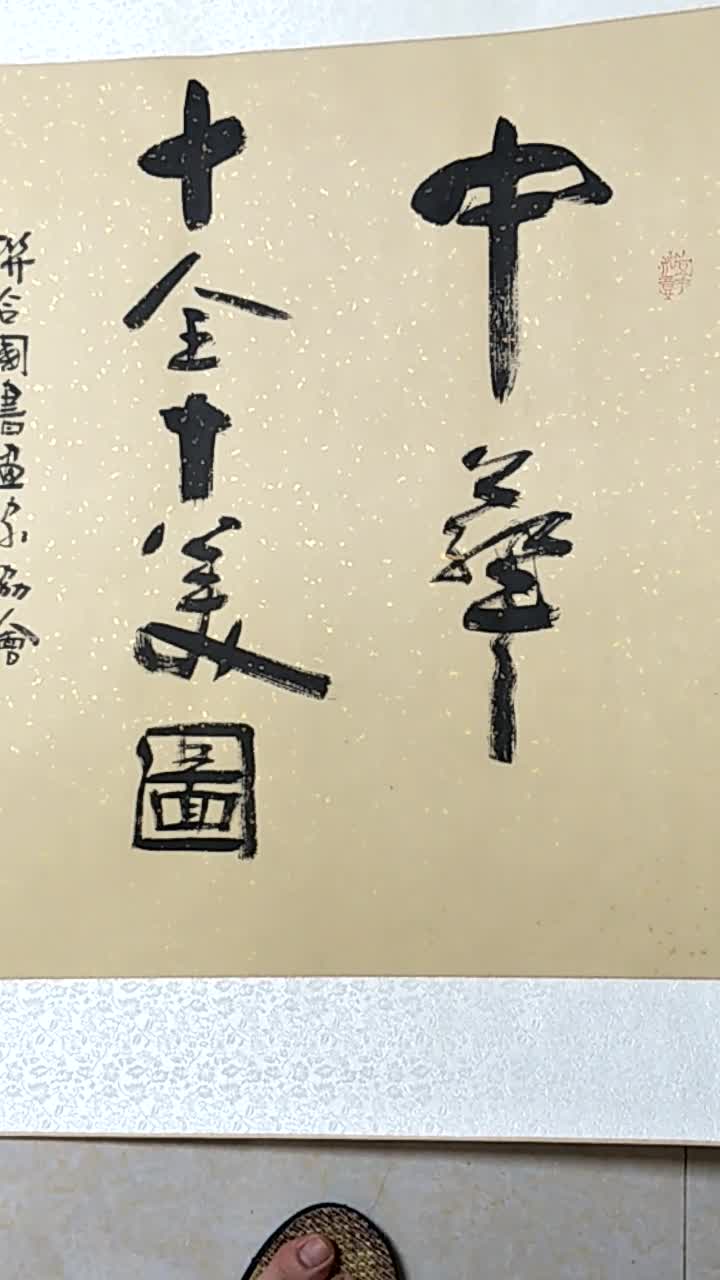 中華
十全十美圖
聯合國書画家協會